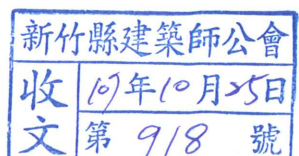 新竹縣建築師公會
收文
107年10月25日
第918號